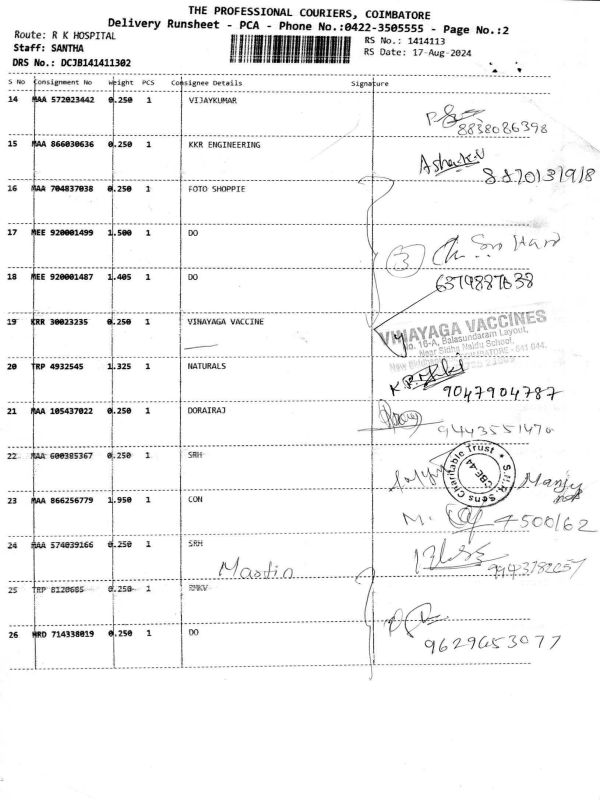 THE PROFESSIONAL COURIERS, COIMBATORE
Delivery Runsheet - PCA - Phone No.:0422-3505555 - Page No.:2
Route: R K HOSPITAL
RS No.: 1414113
Staff: SANTHA
RS Date: 17-Aug-2024
DRS No.: DCJB141411302
S No Consignment No Weight PCS Consignee Details Signature
14 MAA 572023442 0.250 1 VIJAYKUMAR
8838086398
15 MAA 866030636 0.250 1 KKR ENGINEERING
16 MAA 704837038 0.250 1 FOTO SHOPPIE
17 MEE 920001499 1.500 1 DO
3
18 MEE 920001487 1.405 1 DO
6379887638
19 KRR 30023235 0.250 1 VINAYAGA VACCINE
VINAYAGA VACCINES
No. 16-A, Balasundaram Layout,
Near Sidha Naidu School,
COIMBATORE - 641 044.
20 TRP 4932545 1.325 1 NATURALS
9047904787
21 MAA 105437022 0.250 1 DORAIRAJ
9443551470
22 MAA 600385367 0.250 1 SRH
S.H.R. Sens Charitable Trust
CBE-44
Manju
23 MAA 866256779 1.950 1 CON
M.
24 MAA 574039166 0.250 1 SRH
Martin
25 TRP 8120685 0.250 1 RMKV
26 HRD 714338019 0.250 1 DO
9629653077